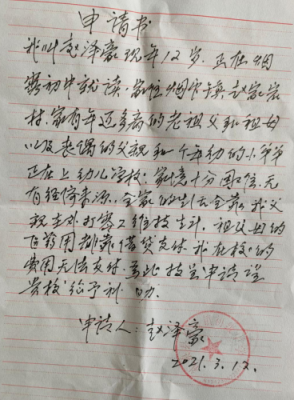 申请书
我叫赵泽豪现年12岁.正在烟
初中就读.家住烟
村.家有年近多病的老祖父和祖母
以及丧偶的父亲和一个年幼的小
正在上幼儿学校.家境十分困难.无
有经济来源.全家的生活全靠我父
亲去外打零工维持生计.祖父母的
医药用都靠借贷支付.我在校的
费用无法支付.为此特呈申请望
贵校给予补助.
申请人:赵泽豪
2021.3.12.